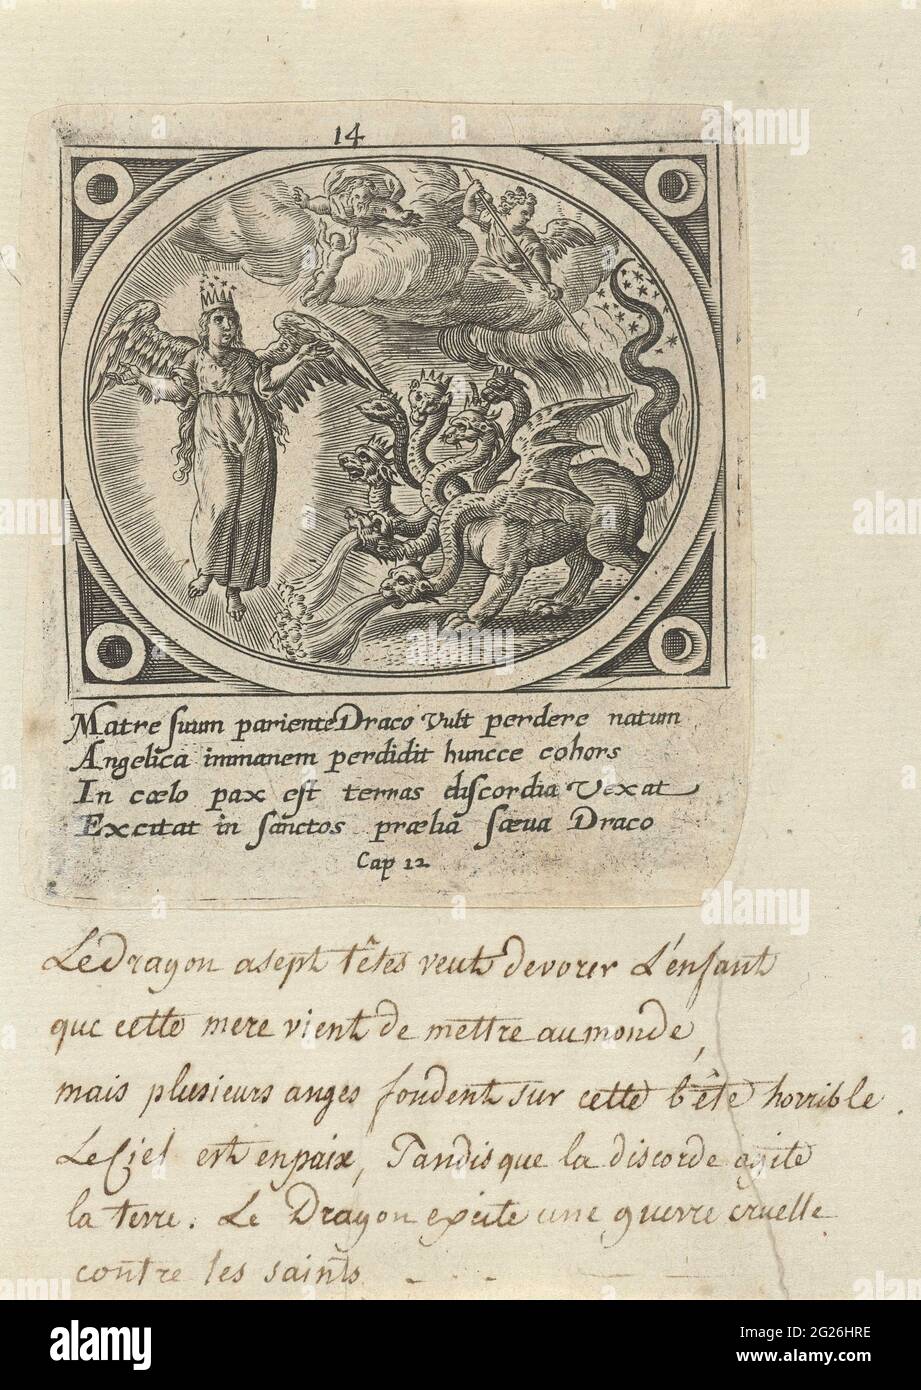 14
Matre suum pariente Draco Vult perdere natum
Angelica immanem perdidit huncce cohors
In cœlo pax est terras discordia Vexat
Excitat in sanctos prælia sæva Draco
Cap 12
Le Dragon a sept têtes veut devorer L'enfant
que cette mere vient de mettre au monde,
mais plusieurs anges fondent sur cette bête horrible.
Le Ciel est en paix, Tandis que la discorde agite
la terre. Le Dragon excite une guerre cruelle
contre les saints
alamy
Image ID: 2G26HRE
www.alamy.com